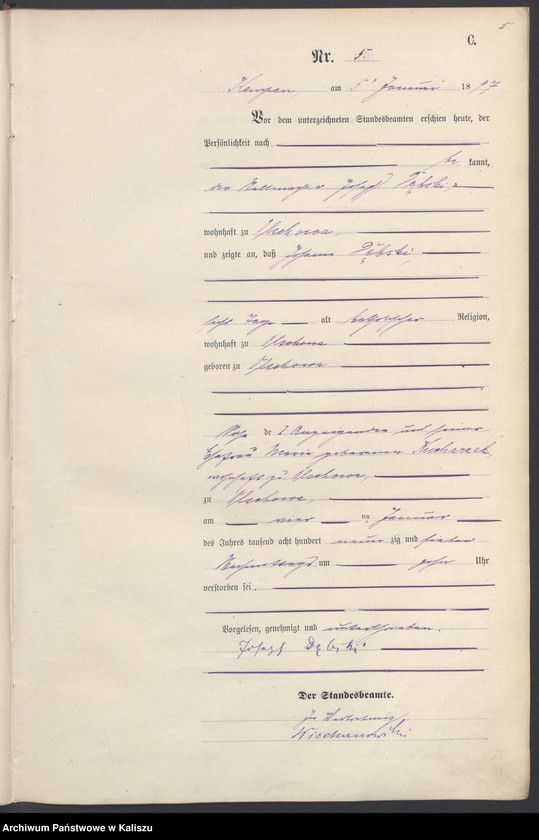 5
C.
Nr. 5
Kempen, am 5. Januar 1897
Vor dem unterzeichneten Standesbeamten erschien heute, der
Persönlichkeit nach
be kannt,
der Josef Dębski
wohnhaft zu
und zeigte an, daß Johann Dębski,
sechs Tage alt katholischer Religion,
wohnhaft zu
geboren zu
Sohn des Anzeigenden und seiner
Ehefrau Marie geborenen Kucharzak,
wohnhaft zu
zu
am vier ten Januar
des Jahres tausend acht hundert neun zig und sieben
Nachmittags um Uhr
verstorben sei.
Vorgelesen, genehmigt und unterschrieben.
Josef Dębski
Der Standesbeamte.
In Vertretung
Archiwum Państwowe w Kaliszu